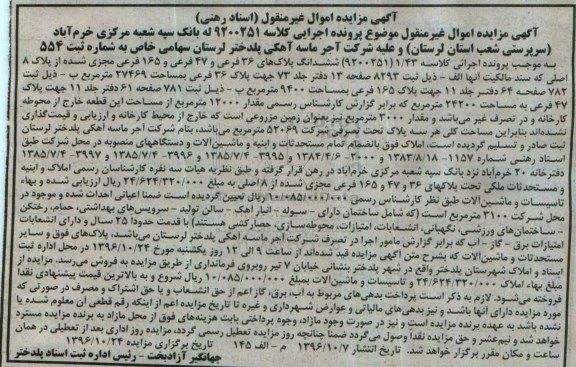 آگهی مزایده اموال غیرمنقول (اسناد رهنی)
آگهی مزایده اموال غیرمنقول موضوع پرونده اجرایی کلاسه ۹۲۰۰۲۵۱ له بانک سپه شعبه مرکزی خرم‌آباد
(سرپرستی شعب استان لرستان) و علیه شرکت آجر ماسه آهکی پلدختر لرستان سهامی خاص به شماره ثبت ۵۵۴
به موجب پرونده اجرائی کلاسه ۱/۴۳ (۹۲۰۰۲۵۱) ششدانگ پلاک‌های ۳۶ فرعی و ۴۷ فرعی و ۱۶۵ فرعی مجزی شده از پلاک ۸
اصلی که سند مالکیت آنها الف - ذیل ثبت ۸۲۹۳ صفحه ۱۳ دفتر جلد ۷۳ جهت پلاک ۳۶ فرعی بمساحت ۲۷۴۶۹ مترمربع ب - ذیل ثبت
۷۸۲ صفحه ۶۴ دفتر جلد ۱۱ جهت پلاک ۱۶۵ فرعی بمساحت ۹۴۰۰ مترمربع پ - ذیل ثبت ۷۸۱ صفحه ۶۱ دفتر جلد ۱۱ جهت پلاک
۴۷ فرعی به مساحت ۲۴۲۰۰ مترمربع که برابر گزارش کارشناس رسمی مقدار ۱۲۰۰۰ مترمربع از مساحت این قطعه خارج از محوطه
کارخانه و در تصرف غیر می‌باشد و مقدار ۳۰۰۰ مترمربع نیز بعنوان زمین مزروعی است که خارج از محیط کارخانه و ارزیابی و قیمت‌گذاری
نشده‌اند بنابراین مساحت کلی هر سه پلاک تحت تصرف شرکت ۵۲۰۶۹ مترمربع می‌باشد، بنام شرکت آجر ماسه آهکی پلدختر لرستان
ثبت صادر و تسلیم گردیده است، املاک فوق بانضمام تمام مستحدثات و ابنیه و ماشین‌آلات و دستگاههای منصوبه در محل شرکت طبق
اسناد رهنی شماره ۱۱۵۷- ۱۳۸۳/۸/۱۸ و ۳۰۰۰- ۱۳۸۴/۴/۶ و ۳۹۹۵- ۱۳۸۵/۷/۴ و ۳۹۹۶- ۱۳۸۵/۷/۴ و ۳۹۹۷- ۱۳۸۵/۷/۴
دفترخانه ۲۰ خرم‌آباد نزد بانک سپه شعبه مرکزی خرم‌آباد در رهن قرار گرفته و طبق نظریه هیات سه نفره کارشناسان رسمی املاک و ابنیه
و مستحدثات ملکی تحت پلاکهای ۳۶ و ۴۷ و ۱۶۵ فرعی مجزی شده از ۸ اصلی به مبلغ ۲۴/۶۲۴/۳۲۰/۰۰۰ ریال ارزیابی شده و بهاء
تاسیسات و ماشین‌آلات طبق نظر کارشناس رسمی ۱۰/۰۸۵/۰۰۰/۰۰۰ ریال تعیین گردیده است ضمنا اعیانی احداث شده و موجود در
محل شرکت ۳۱۰۰ مترمربع است (که شامل ساختمان دارای - سوله - انبار آهک - سالن تولید - سرویس‌های بهداشتی، حمام، رختکن
- ساختمان‌های ورزشی، نگهبانی، انشعابات، امتیازات، محوطه‌سازی، حصارکشی هستند) با قدمت حدودا ۲۵ سال و دارای انشعابات
امتیازات برق - گاز - آب که برابر گزارش مامور اجرا در تصرف شرکت آجر ماسه آهکی پلدختر لرستان می‌باشند، پلاک‌های فوق و سایر
مستحدثات و ماشین‌آلات که بشرح متن آگهی مزایده قید شده‌اند از ساعت ۹ الی ۱۲ روز یکشنبه مورخ ۱۳۹۶/۱۰/۲۴ در محل اداره ثبت
اسناد و املاک شهرستان پلدختر واقع در شهر پلدختر بنشانی خیابان ۷ تیر روبروی فرمانداری از طریق مزایده به فروش می‌رسد. مزایده از
مبلغ بهاء املاک ۲۴/۶۲۴/۳۲۰/۰۰۰ و تاسیسات و ماشین آلات بمبلغ ۱۰/۰۸۵/۰۰۰/۰۰۰ ریال شروع و به بالاترین قیمت پیشنهادی نقدا
فروخته می‌شود. لازم به ذکر است پرداخت بدهی‌های مربوط به آب، برق، گاز اعم از حق انشعاب و یا حق اشتراک و مصرف در صورتی که
مورد مزایده دارای آنها باشد و نیز بدهی‌های مالیاتی و عوارض شهرداری و غیره تا تاریخ مزایده اعم از اینکه رقم قطعی آن معلوم شده یا
نشده باشد به عهده برنده مزایده است و نیز در صورت وجود مازاد، وجوه پرداختی بابت هزینه‌های فوق از محل مازاد به برنده مزایده مسترد
خواهد شد و نیم‌عشر و حق مزایده نقدا وصول می‌گردد ضمنا چنانچه روز مزایده تعطیل رسمی گردد، مزایده روز اداری بعد از تعطیلی در همان
ساعت و مکان مقرر برگزار خواهد شد. تاریخ انتشار ۱۳۹۶/۱۰/۷ م - الف ۱۴۵ تاریخ برگزاری مزایده ۱۳۹۶/۱۰/۲۴
جهانگیر آزادبخت - رئیس اداره ثبت اسناد پلدختر